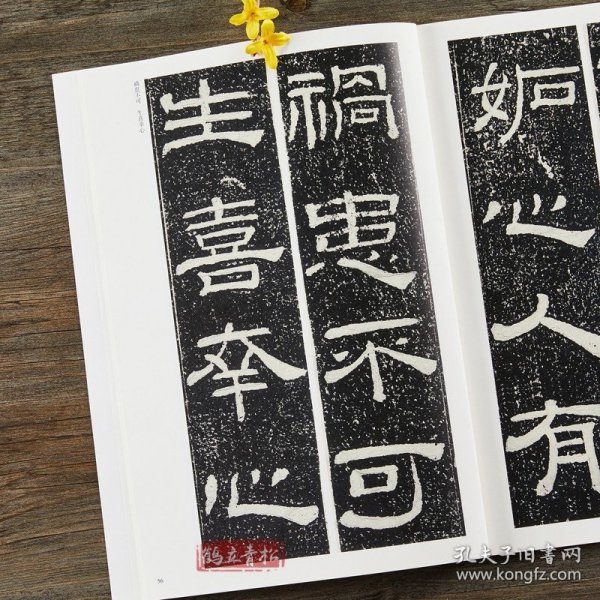 妬心人有
禍患不可
生喜幸心
禍患不可 生喜幸心
56
鹤立青松
孔夫子旧书网
www.kongfz.com